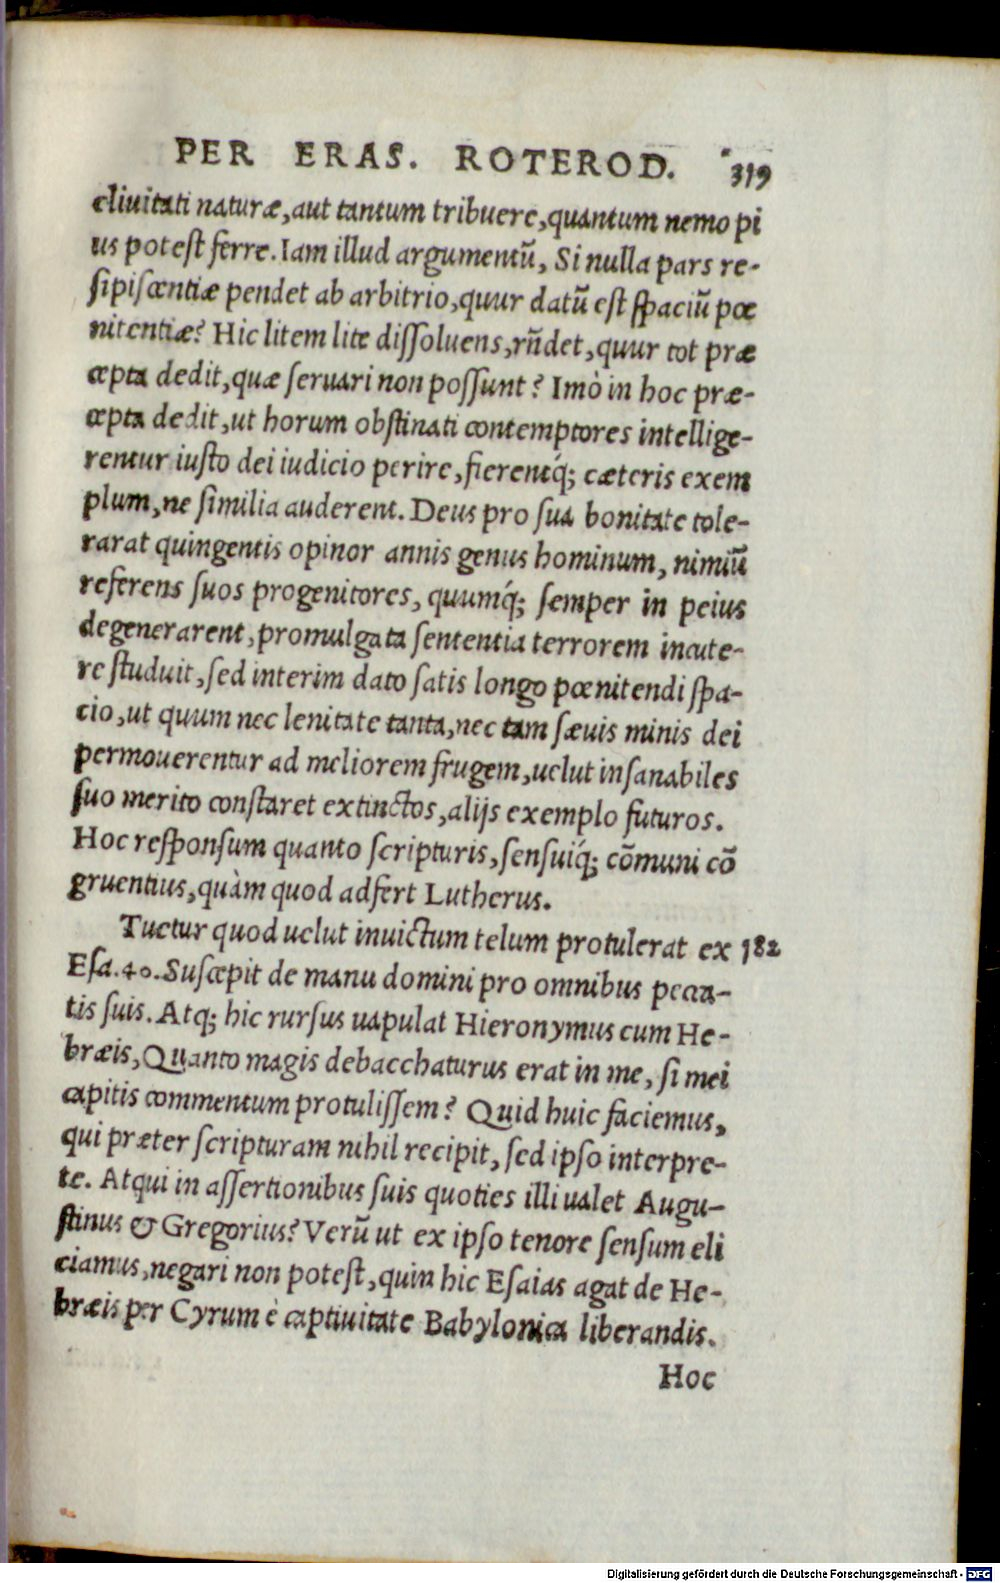 PER ERAS. ROTEROD. 319
cliuitati naturæ, aut tantum tribuere, quantum nemo pi
us potest ferre. Iam illud argumentũ, Si nulla pars re-
sipiscentiæ pendet ab arbitrio, quur datũ est spaciũ pœ
nitentiæ? Hic litem lite dissoluens, rñdet, quur tot præ
cepta dedit, quæ seruari non possunt? Imò in hoc præ-
cepta dedit, ut horum obstinati contemptores intellige-
rentur iusto dei iudicio perire, fierentq́; cæteris exem
plum, ne similia auderent. Deus pro sua bonitate tole-
rarat quingentis opinor annis genus hominum, nimiũ
referens suos progenitores, quumq́; semper in peius
degenerarent, promulgata sententia terrorem incute-
re studuit, sed interim dato satis longo pœnitendi spa-
cio, ut quum nec lenitate tanta, nec tam sæuis minis dei
permouerentur ad meliorem frugem, uelut insanabiles
suo merito constaret extinctos, alijs exemplo futuros.
Hoc responsum quanto scripturis, sensuiq́; cõmuni cõ
gruentius, quàm quod adfert Lutherus.
Tuetur quod uelut inuictum telum protulerat ex 182
Esa. 40. Suscepit de manu domini pro omnibus pecca-
tis suis. Atq; hic rursus uapulat Hieronymus cum He-
bræis, Quanto magis debacchaturus erat in me, si mei
capitis commentum protulissem? Quid huic faciemus,
qui præter scripturam nihil recipit, sed ipso interpre-
te. Atqui in assertionibus suis quoties illi ualet Augu-
stinus & Gregorius? Verũ ut ex ipso tenore sensum eli
ciamus, negari non potest, quin hic Esaias agat de He-
bræis per Cyrum è captiuitate Babylonica liberandis.
Hoc
Digitalisierung gefördert durch die Deutsche Forschungsgemeinschaft - DFG